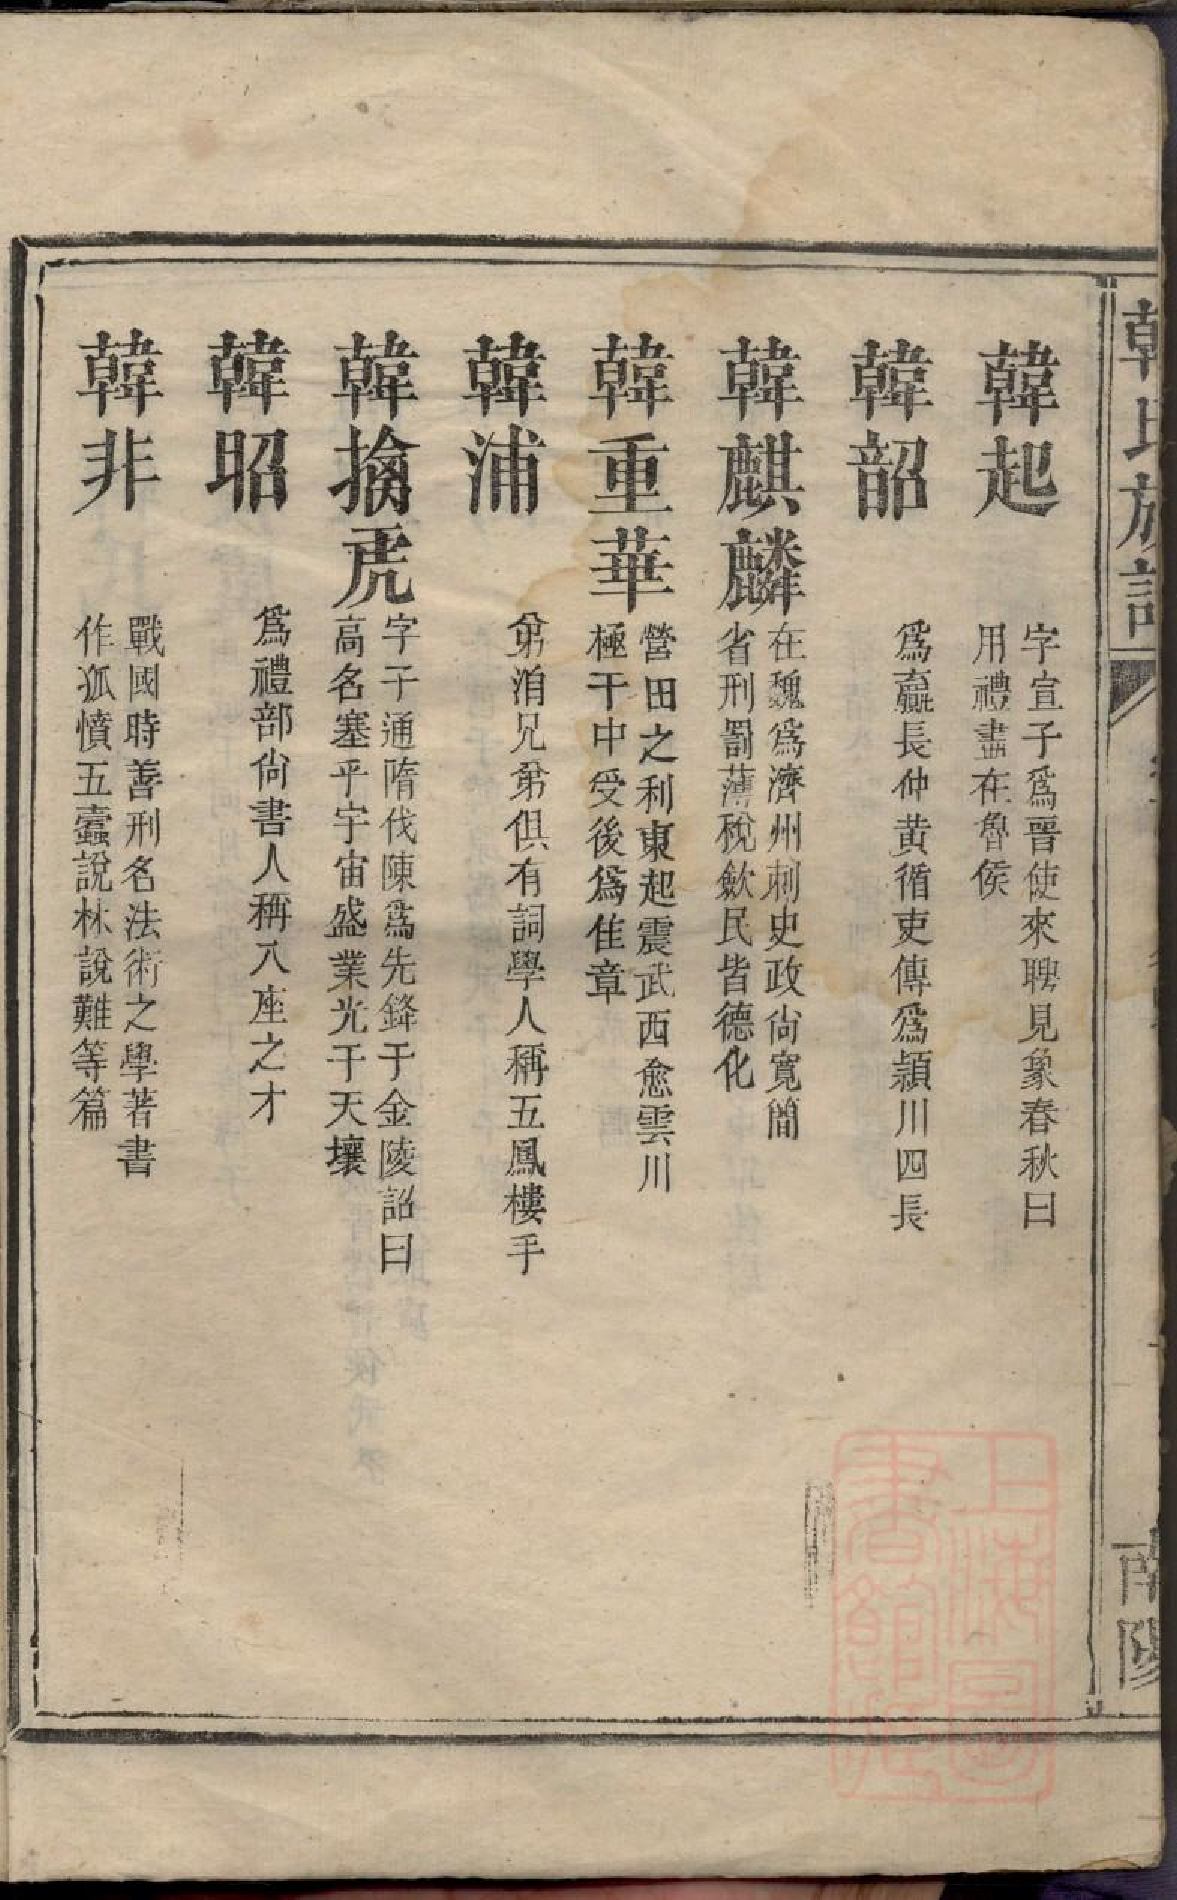 韓氏族譜
南陽
韓起
字宣子爲晉使來聘見象春秋曰
用禮盡在魯侯
韓韶
爲嬴長仲黄循吏傳爲潁川四長
韓麒麟
在魏爲濟州刺史政尙寬簡
省刑罰薄稅歛民皆德化
韓重華
營田之利東起震武西愈雲川
極于中受後爲佳章
韓浦
弟洎兄弟俱有詞學人稱五鳳樓手
韓擒虎
字子通隋伐陳爲先鋒于金陵詔曰
高名塞乎宇宙盛業光于天壤
韓昭
爲禮部尙書人稱八座之才
韓非
戰國時善刑名法術之學著書
作孤憤五蠹說林說難等篇
上海圖
書館藏